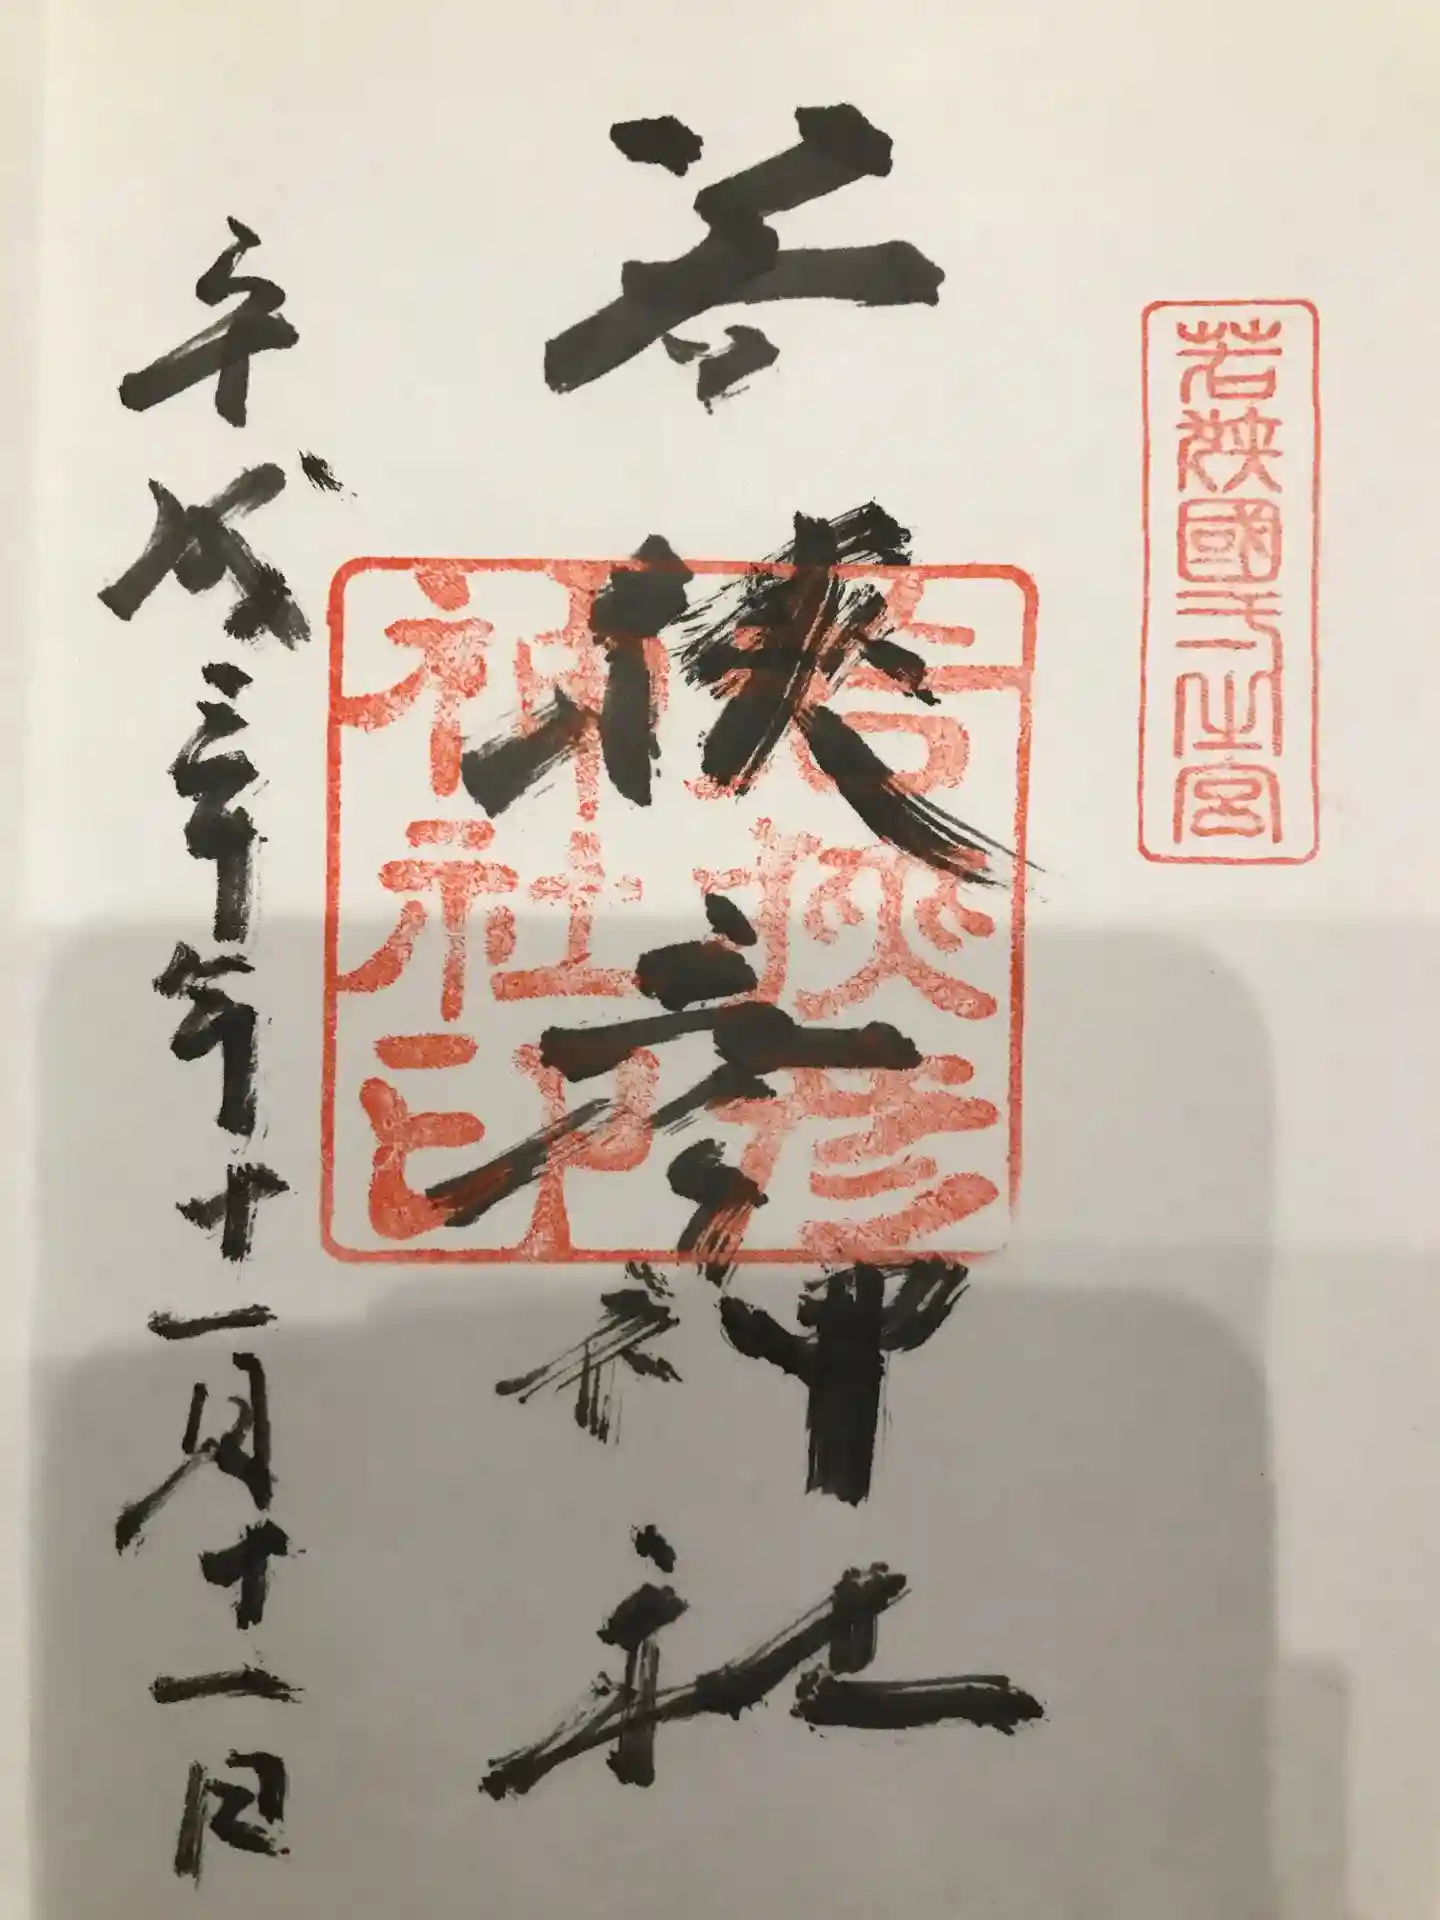 若狹國一之宮
若狭彦神社
若狹彦神社印
平成三十年十一月十一日